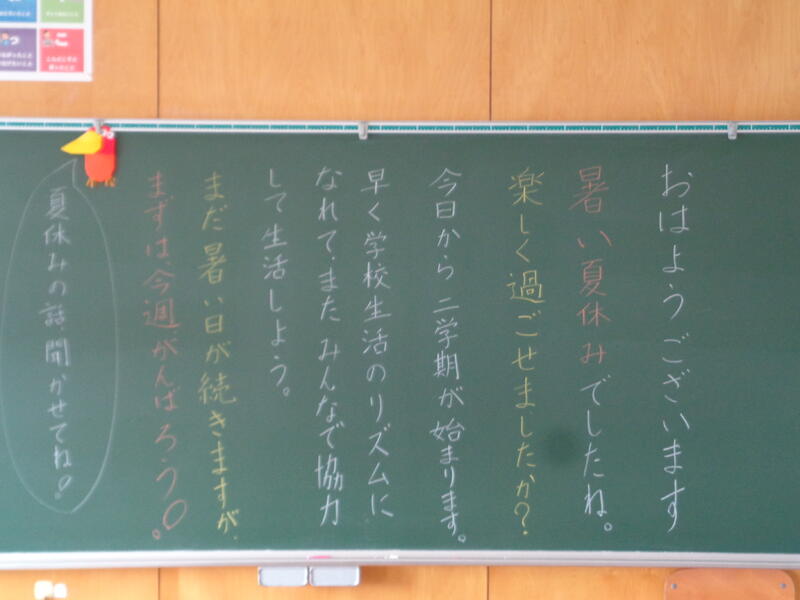 おはようございます
暑い夏休みでしたね。
楽しく過ごせましたか?
今日から二学期が始まります。
早く学校生活のリズムに
なれて、また みんなで協力
して生活しよう。
まだ暑い日が続きますが、
まずは今週がんばろう!
夏休みの話、聞かせてね!